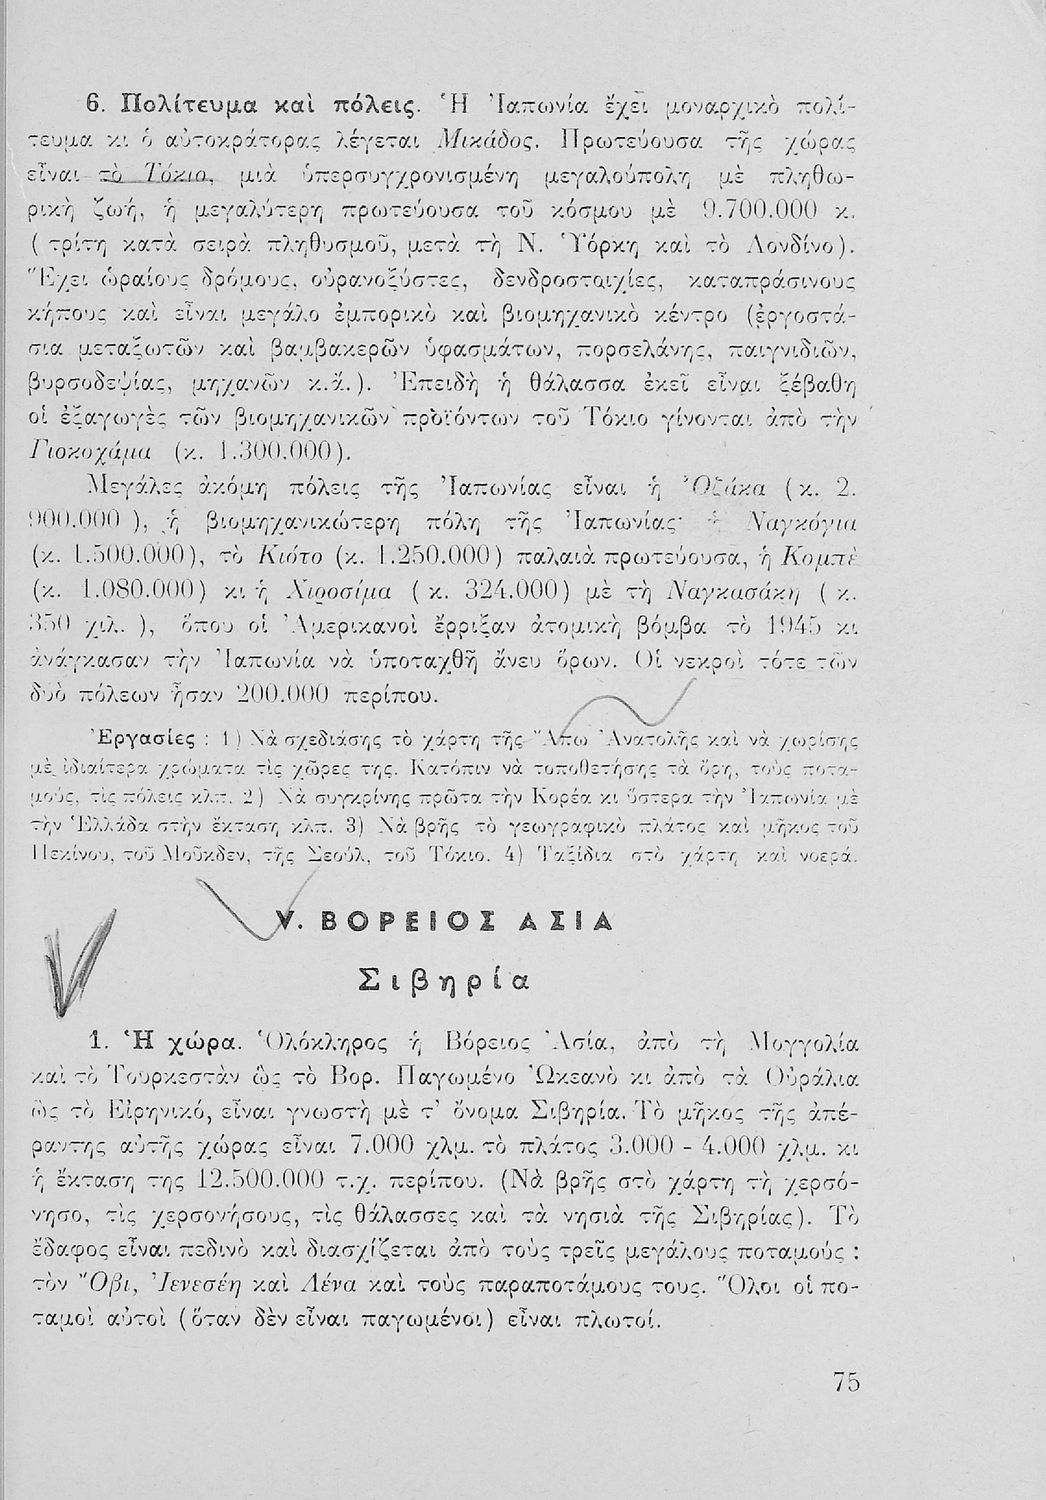 6. Πολίτευμα καὶ πόλεις. Ἡ Ἰαπωνία ἔχει μοναρχικὸ πολί-
τευμα κι ὁ αὐτοκράτορας λέγεται Μικάδος. Πρωτεύουσα τῆς χώρας
εἶναι τὸ Τόκιο, μιὰ ὑπερσυγχρονισμένη μεγαλούπολη μὲ πληθω-
ρικὴ ζωή, ἡ μεγαλύτερη πρωτεύουσα τοῦ κόσμου μὲ 9.700.000 κ.
( τρίτη κατὰ σειρὰ πληθυσμοῦ, μετὰ τὴ Ν. Ὑόρκη καὶ τὸ Λονδίνο).
Ἔχει ὡραίους δρόμους, οὐρανοξύστες, δενδροστοιχίες, καταπράσινους
κήπους καὶ εἶναι μεγάλο ἐμπορικὸ καὶ βιομηχανικὸ κέντρο (ἐργοστά-
σια μεταξωτῶν καὶ βαμβακερῶν ὑφασμάτων, πορσελάνης, παιγνιδιῶν,
βυρσοδεψίας, μηχανῶν κ.ἄ.). Ἐπειδὴ ἡ θάλασσα ἐκεῖ εἶναι ξέβαθη
οἱ ἐξαγωγὲς τῶν βιομηχανικῶν προϊόντων τοῦ Τόκιο γίνονται ἀπὸ τὴν
Γιοκοχάμα (κ. 1.300.000).
Μεγάλες ἀκόμη πόλεις τῆς Ἰαπωνίας εἶναι ἡ Ὀζάκα (κ. 2.
900.000 ), ἡ βιομηχανικώτερη πόλη τῆς Ἰαπωνίας· ἡ Ναγκόγια
(κ. 1.500.000), τὸ Κιότο (κ. 1.250.000) παλαιὰ πρωτεύουσα, ἡ Κομπὲ
(κ. 1.080.000) κι ἡ Χιροσίμα ( κ. 324.000) μὲ τὴ Ναγκασάκη ( κ.
350 χιλ. ), ὅπου οἱ Ἀμερικανοὶ ἔρριξαν ἀτομικὴ βόμβα τὸ 1945 κι
ἀνάγκασαν τὴν Ἰαπωνία νὰ ὑποταχθῆ ἄνευ ὅρων. Οἱ νεκροὶ τότε τῶν
δυὸ πόλεων ἦσαν 200.000 περίπου.
Ἐργασίες : 1) Νὰ σχεδιάσης τὸ χάρτη τῆς Ἄπω Ἀνατολῆς καὶ νὰ χωρίσης
μὲ ἰδιαίτερα χρώματα τὶς χῶρες της. Κατόπιν νὰ τοποθετήσης τὰ ὄρη, τοὺς ποτα-
μούς, τὶς πόλεις κλπ. 2) Νὰ συγκρίνης πρῶτα τὴν Κορέα κι ὕστερα τὴν Ἰαπωνία μὲ
τὴν Ἑλλάδα στὴν ἔκταση κλπ. 3) Νὰ βρῆς τὸ γεωγραφικὸ πλάτος καὶ μῆκος τοῦ
Πεκίνου, τοῦ Μοῦκδεν, τῆς Σεούλ, τοῦ Τόκιο. 4) Ταξίδια στὸ χάρτη καὶ νοερά.
V. ΒΟΡΕΙΟΣ ΑΣΙΑ
Σιβηρία
1. Ἡ χώρα. Ὁλόκληρος ἡ Βόρειος Ἀσία, ἀπὸ τὴ Μογγολία
καὶ τὸ Τουρκεστὰν ὣς τὸ Βορ. Παγωμένο Ὠκεανὸ κι ἀπὸ τὰ Οὐράλια
ὣς τὸ Εἰρηνικό, εἶναι γνωστὴ μὲ τ' ὄνομα Σιβηρία. Τὸ μῆκος τῆς ἀπέ-
ραντης αὐτῆς χώρας εἶναι 7.000 χλμ. τὸ πλάτος 3.000 - 4.000 χλμ. κι
ἡ ἔκταση της 12.500.000 τ.χ. περίπου. (Νὰ βρῆς στὸ χάρτη τὴ χερσό-
νησο, τὶς χερσονήσους, τὶς θάλασσες καὶ τὰ νησιὰ τῆς Σιβηρίας). Τὸ
ἔδαφος εἶναι πεδινὸ καὶ διασχίζεται ἀπὸ τοὺς τρεῖς μεγάλους ποταμούς :
τὸν Ὄβι, Ἰενεσέη καὶ Λένα καὶ τοὺς παραποτάμους τους. Ὅλοι οἱ πο-
ταμοὶ αὐτοὶ (ὅταν δὲν εἶναι παγωμένοι) εἶναι πλωτοί.
75